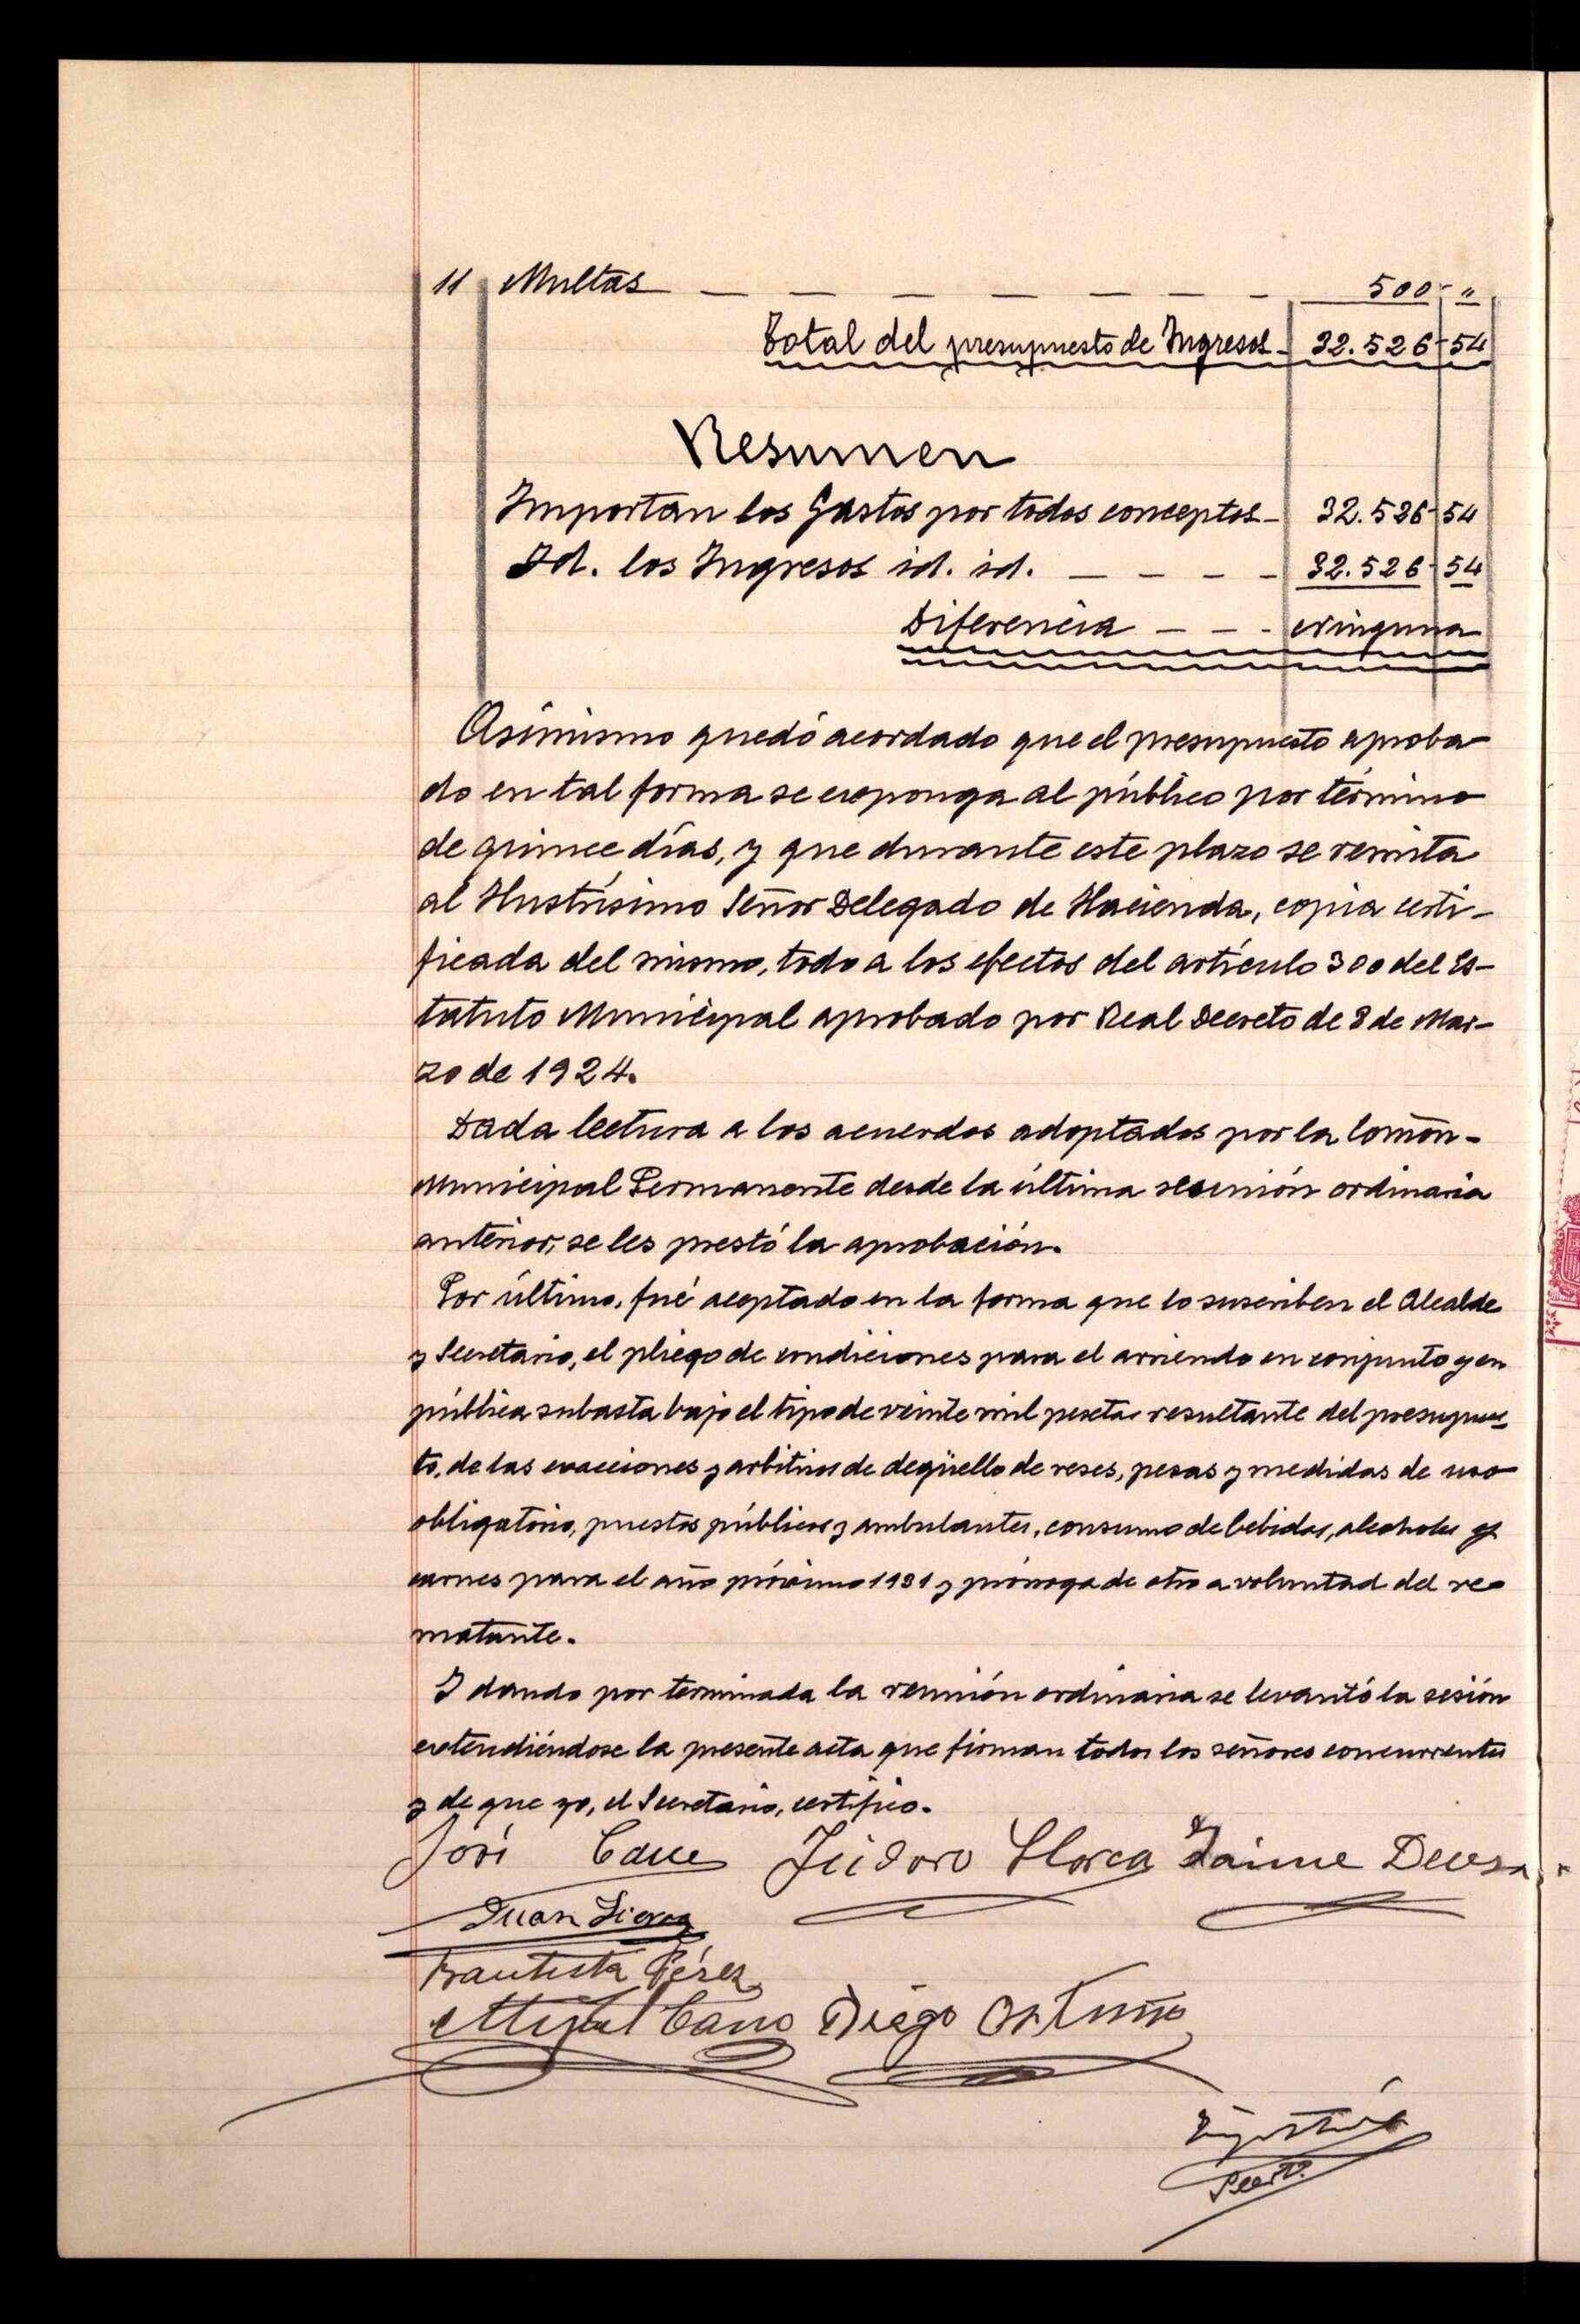 11 Multas — — — — — — — 500 - "
Total del presupuesto de Ingresos - 32.526 - 54
Resumen
Importan los Gastos por todos conceptos - 32.526 - 54
Id. los Ingresos id. id. — — — — 32.526 - 54
Diferencia — — - ninguna
Asimismo quedó acordado que el presupuesto aproba
do en tal forma se exponga al público por término
de quince días, y que durante este plazo se remita
al Ilustrísimo Señor Delegado de Hacienda, copia certi-
ficada del mismo, todo a los efectos del artículo 300 del Es-
tatuto Municipal aprobado por Real Decreto de 8 de Mar-
zo de 1924.
Dada lectura a los acuerdos adoptados por la Comón-
Municipal Permanente desde la última reunión ordinaria
anterior, se les prestó la aprobación.
Por último, fué aceptado en la forma que lo suscriben el Alcalde
y Secretario, el pliego de condiciones para el arriendo en conjunto y en
pública subasta bajo el tipo de veinte mil pesetas resultante del presupues
to, de las exacciones y arbitrios de degüello de reses, pesas y medidas de uso
obligatorio, puestos públicos y ambulantes, consumo de bebidas, alcoholes y
carnes para el año próximo 1931 y prórroga de otro a voluntad del re-
matante.
Y dando por terminada la reunión ordinaria se levantó la sesión
extendiéndose la presente acta que firman todos los señores concurrentes
y de que yo, el Secretario, certifico.
José Isidoro Llorca Jaime Devesa
Juan Llorca
Bautista Pérez
Miguel Cano Diego Ortuño
Secrt.º